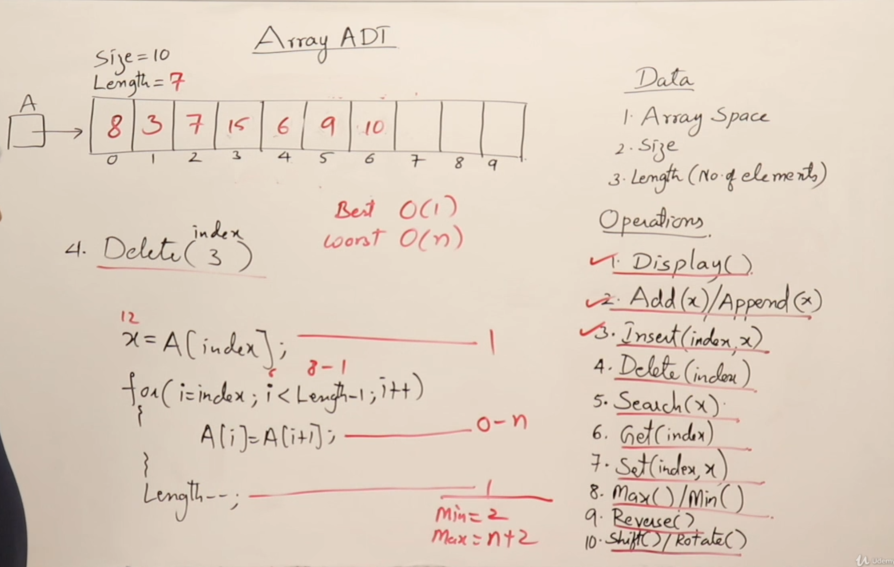 Array ADT
Size=10
Length=7
A
8 3 7 15 6 9 10
0 1 2 3 4 5 6 7 8 9
Best O(1)
Worst O(n)
index
4. Delete( 3 )
12
x=A[index]; 1
8-1
for(i=index; i<Length-1; i++)
{
A[i]=A[i+1]; 0-n
}
Length--; 1
Min=2
Max=n+2
Data
1. Array Space
2. Size
3. Length (No. of elements)
Operations
1. Display()
2. Add(x)/Append(x)
3. Insert(index,x)
4. Delete(index)
5. Search(x)
6. Get(index)
7. Set(index,x)
8. Max()/Min()
9. Reverse()
10. Shift()/Rotate()